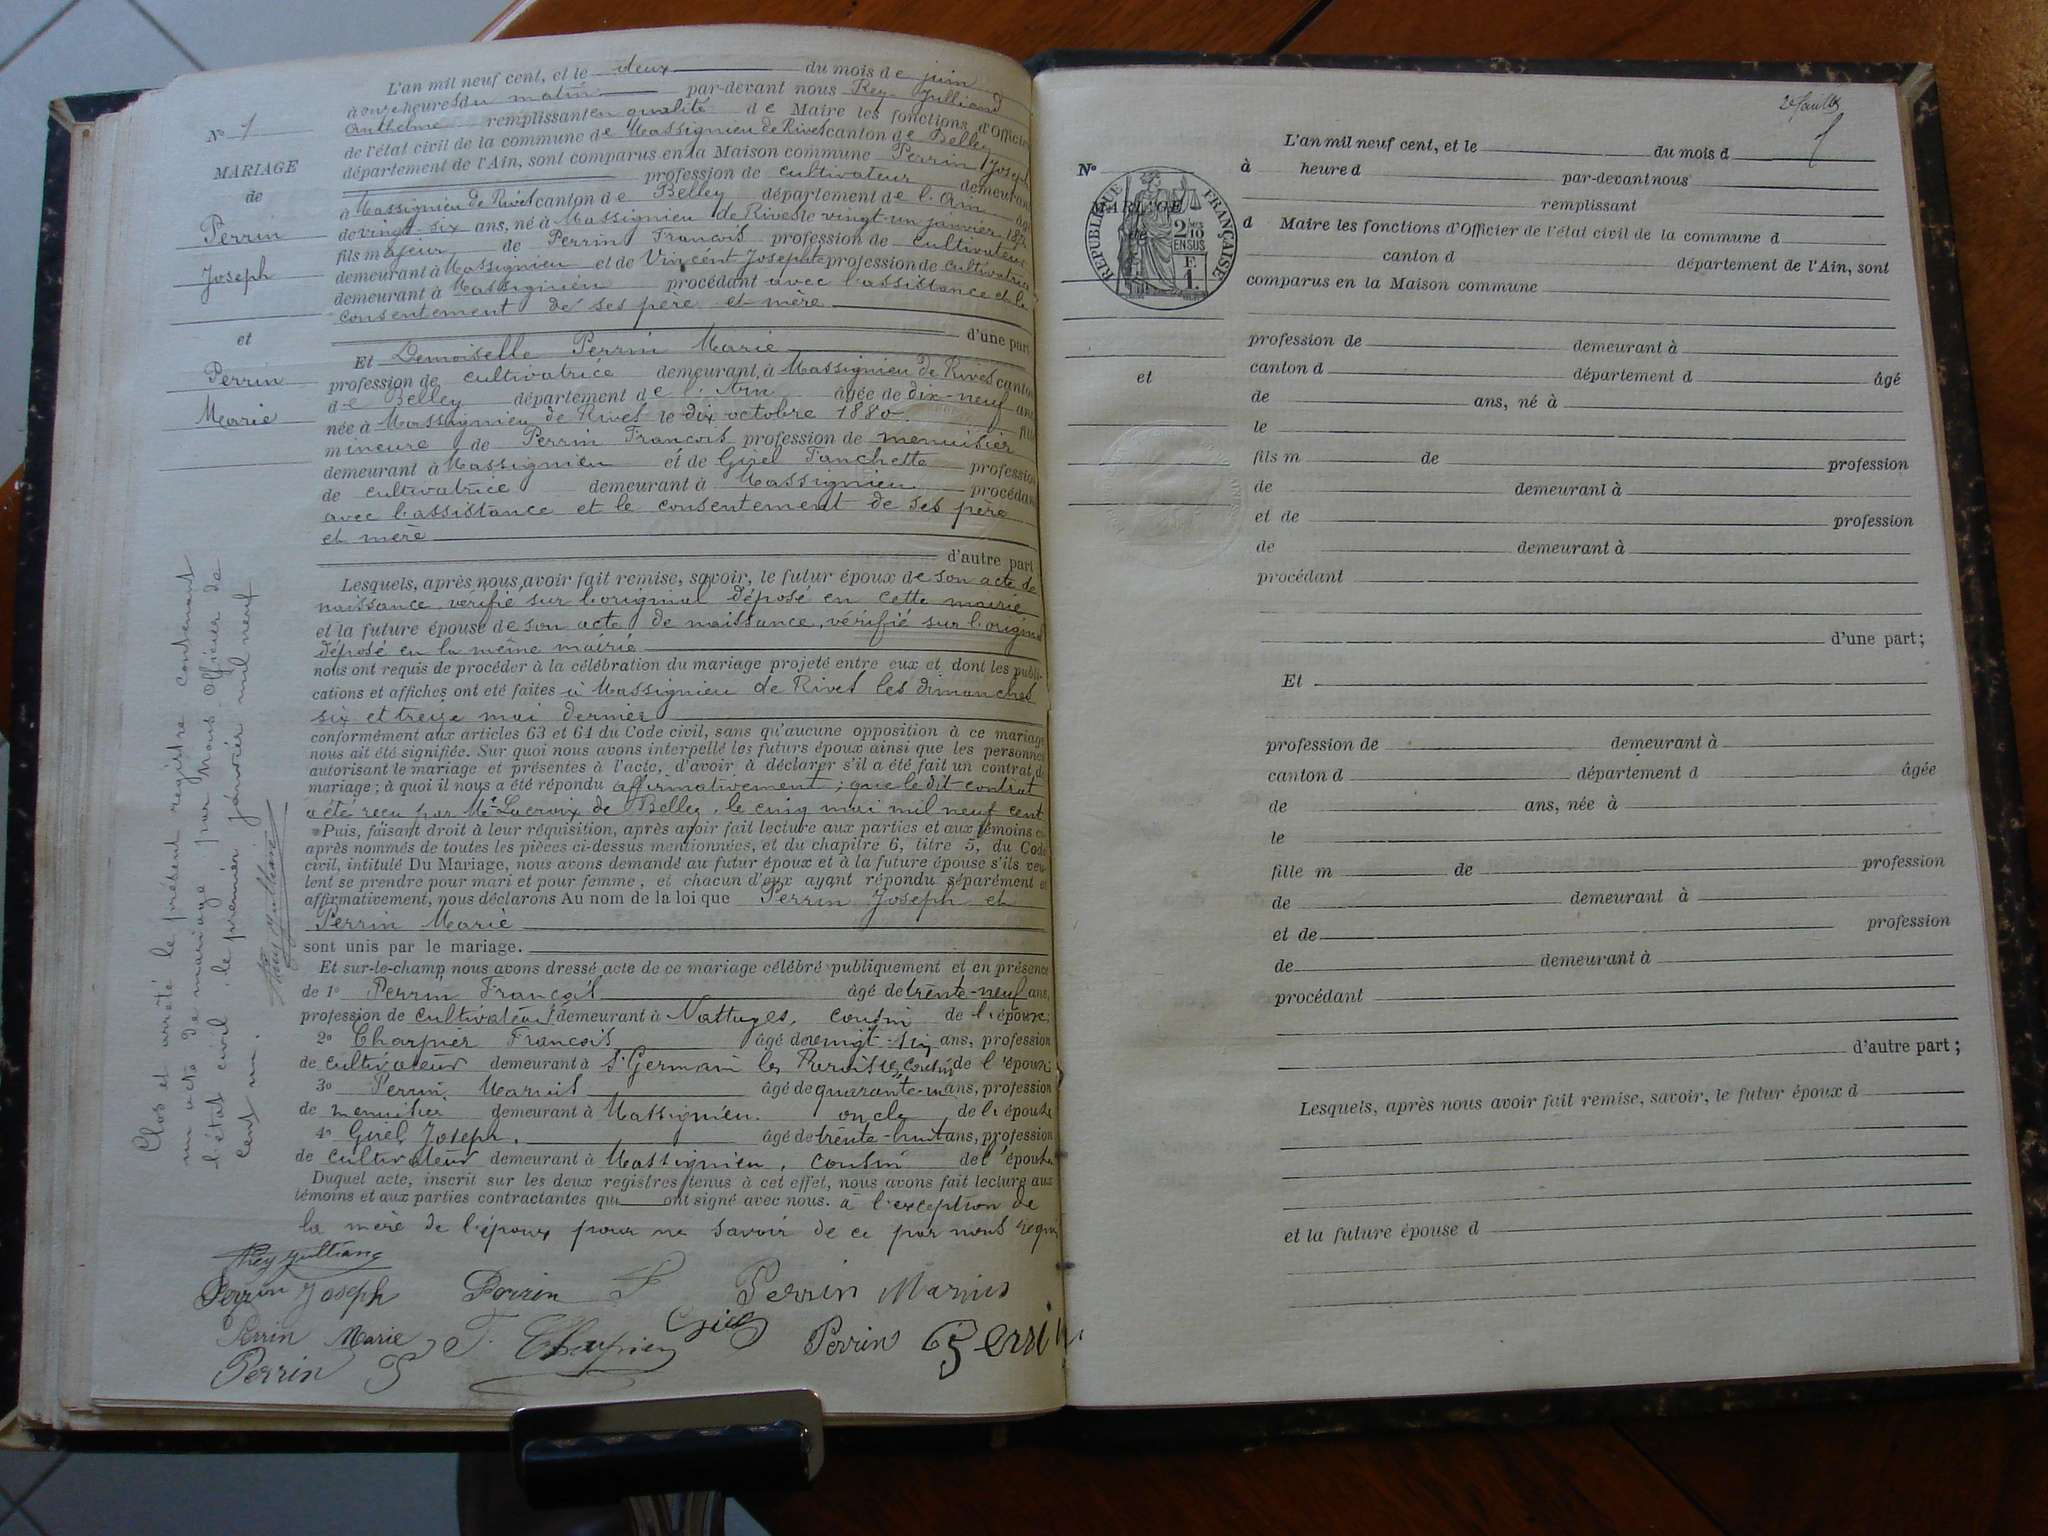 L'an mil neuf cent, et le deux du mois de juin
à onze heures du matin par-devant nous Rey-Julliand
Anthelme remplissant en qualité de Maire les fonctions d'Officier
de l'état civil de la commune de Massignieu de Rives canton de Belley
département de l'Ain, sont comparus en la Maison commune Perrin Joseph
profession de cultivateur demeurant
à Massignieu de Rives canton de Belley département de l'Ain âgé
de vingt-six ans, né à Massignieu de Rives le vingt-un janvier 187
fils majeur de Perrin François profession de cultivateur
demeurant à Massignieu et de Vincent Josephte profession de cultivatrice
demeurant à Massignieu procédant avec l'assistance et le
consentement de ses père et mère
d'une part
Et Demoiselle Perrin Marie
profession de cultivatrice demeurant à Massignieu de Rives canton
de Belley département de l'Ain âgée de dix-neuf ans
née à Massignieu de Rives le dix octobre 1880 fille
mineure de Perrin François profession de menuisier
demeurant à Massignieu et de Girel Fanchette profession
de cultivatrice demeurant à Massignieu procédant
avec l'assistance et le consentement de ses père
et mère
d'autre part
Lesquels, après nous avoir fait remise, savoir, le futur époux de son acte de
naissance vérifié sur l'original déposé en cette mairie
et la future épouse de son acte de naissance, vérifié sur l'original
déposé en la même mairie
nous ont requis de procéder à la célébration du mariage projeté entre eux et dont les publi-
cations et affiches ont été faites à Massignieu de Rives les dimanches
six et treize mai dernier
conformément aux articles 63 et 64 du Code civil, sans qu'aucune opposition à ce mariage
nous ait été signifiée. Sur quoi nous avons interpellé les futurs époux ainsi que les personnes
autorisant le mariage et présentes à l'acte, d'avoir à déclarer s'il a été fait un contrat de
mariage ; à quoi il nous a été répondu affirmativement ; que le dit contrat
a été reçu par Me Lacroix de Belley, le cinq mai mil neuf cent
Puis, faisant droit à leur réquisition, après avoir fait lecture aux parties et aux témoins ci-
après nommés de toutes les pièces ci-dessus mentionnées, et du chapitre 6, titre 5, du Code
civil, intitulé Du Mariage, nous avons demandé au futur époux et à la future épouse s'ils veu-
lent se prendre pour mari et pour femme, et chacun d'eux ayant répondu séparément et
affirmativement, nous déclarons Au nom de la loi que Perrin Joseph et
Perrin Marie
sont unis par le mariage.
Et sur-le-champ nous avons dressé acte de ce mariage célébré publiquement et en présence
de 1o Perrin François âgé de trente-neuf ans,
profession de cultivateur demeurant à Nattages, cousin de l'époux;
2o Charpier François âgé de vingt-six ans, profession
de cultivateur demeurant à St Germain les Paroisses, cousin de l'époux;
3o Perrin Marius âgé de quarante-un ans, profession
de menuisier demeurant à Massignieu. oncle de l'épouse
4o Girel Joseph, âgé de trente-huit ans, profession
de cultivateur demeurant à Massignieu, cousin de l'épouse
Duquel acte, inscrit sur les deux registres tenus à cet effet, nous avons fait lecture aux
témoins et aux parties contractantes qui ont signé avec nous. à l'exception de
la mère de l'époux pour ne savoir de ce par nous requi
Rey Julliand
Perrin Joseph Perrin F Perrin Marius
Perrin Marie F. Charpier Girel Perrin Perrin
Perrin F
No 1
MARIAGE
de
Perrin
Joseph
et
Perrin
Marie
Clos et arrêté le présent registre contenant
un acte de mariage par Nous Officier de
l'état civil, le premier janvier mil neuf
cent un.
Rey Julliand
No
MARIAGE
de
RÉPUBLIQUE FRANÇAISE
2/10
EN SUS
F
1.
et
L'an mil neuf cent, et le du mois d
à heure d par-devant nous
remplissant
d Maire les fonctions d'Officier de l'état civil de la commune d
canton d département de l'Ain, sont
comparus en la Maison commune
profession de demeurant à
canton d département d âgé
de ans, né à
le
fils m de profession
de demeurant à
et de profession
de demeurant à
procédant
d'une part;
Et
profession de demeurant à
canton d département d âgée
de ans, née à
le
fille m de profession
de demeurant à
et de profession
de demeurant à
procédant
d'autre part ;
Lesquels, après nous avoir fait remise, savoir, le futur époux d
et la future épouse d